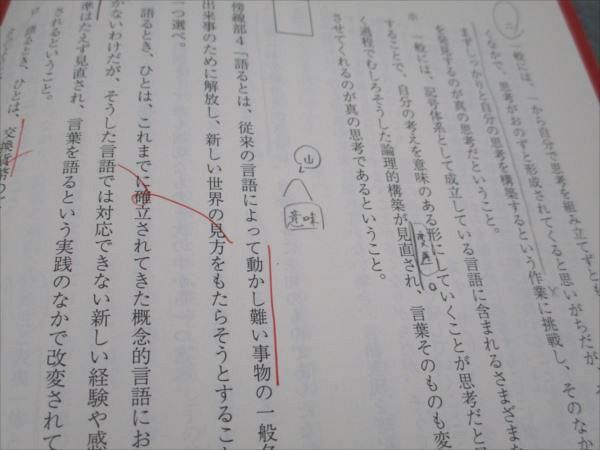 ニ 一般には、一から自分で思考を組み立てずとも、
くなかで、思考がおのずと形成されてくると思いがちだが、
まずしっかりと自分の思考を構築するという作業に挑戦し、そのなか
を発見するのが真の思考だということ。
ホ 一般には、記号体系として成立している言語に含まれるさまざまな
することで、自分の考えを意味のある形にしていくことが思考だと
く過程でむしろそうした論理的構築が見直され、言葉そのものも変
させてくれるのが真の思考であるということ。
山
意味
傍線部4「語るとは、従来の言語によって動かし難い事物の一般
出来事のために解放し、新しい世界の見方をもたらそうとすること
一つ選べ。
語るとき、ひとは、これまでに確立されてきた概念的言語にお
がないわけだが、そうした言語では対応できない新しい経験や感
準はたえず見直され、言葉を語るという実践のなかで改変されて
されるということ。
ロ 語るとき、ひとは、交換